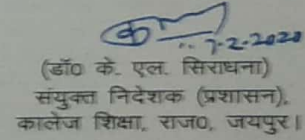 7-2-2020
(डॉ0 के. एल. सिराधना)
संयुक्त निदेशक (प्रशासन),
कालेज शिक्षा, राज0, जयपुर।